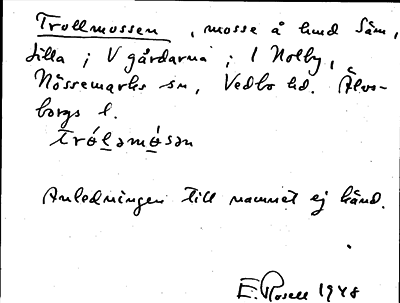 Trollmossen, mosse å hmd Säm,
Lilla ; V gårdarna ; 1 Nolby,
Nössemarks sn, Vedbo hd. Älvs-
borgs l.
Trólǝmósǝn
Anledningen till namnet ej känd.
E. Rosell 1948